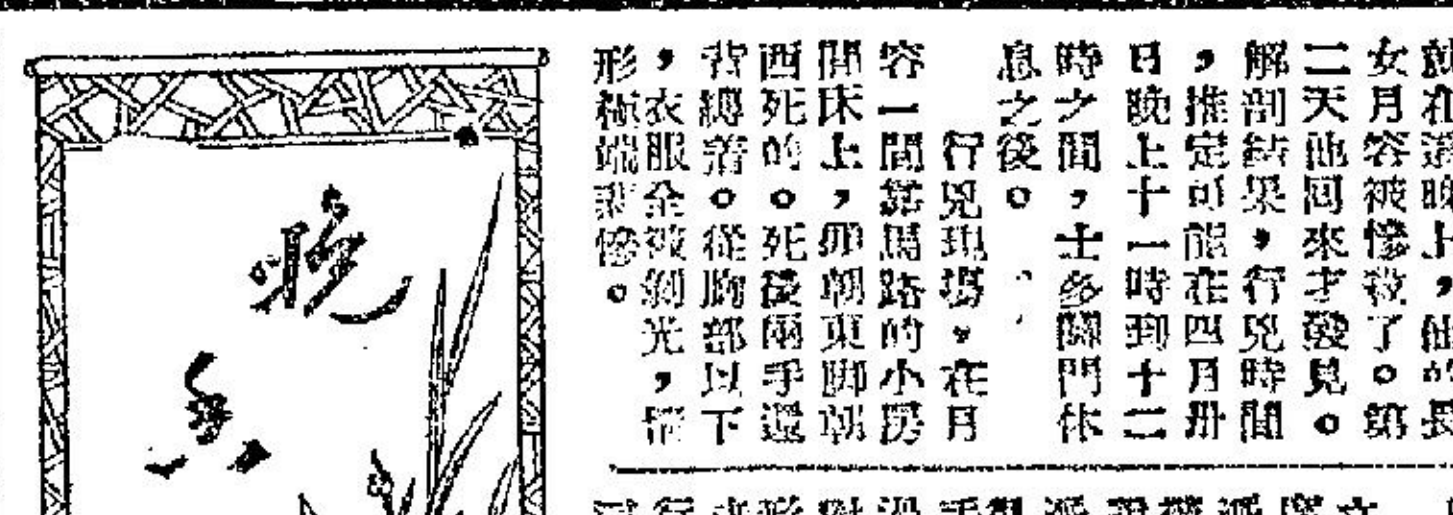 就在這晚上，他的長
女月容被慘殺了。第
二天他回來才發見。
解剖結果，行兇時間
，推定可能在四月卅
日晚上十一時到十二
時之間，士多關門休
息之後。
行兇現場，在月
容一間靠馬路的小房
間床上，卽朝東脚朝
西死的。死後兩手還
背縛着。從胸部以下
，衣服全被剝光，情
形極端悲慘。
晚